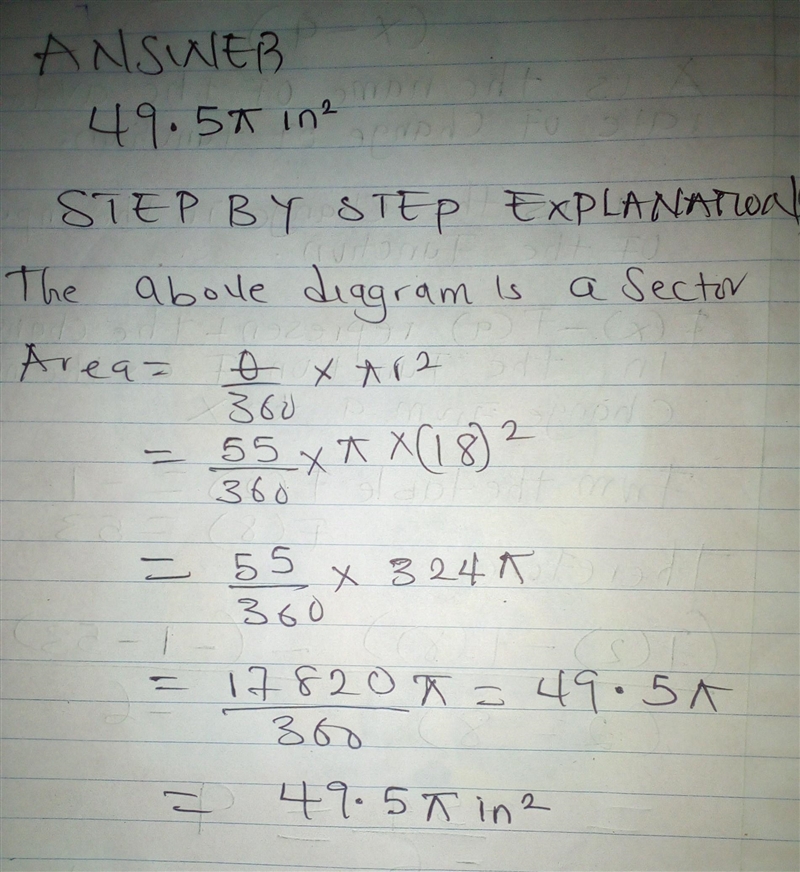 ANSWER
49.5π in²
STEP BY STEP EXPLANATION
The above diagram is a Sector
Area = θ/360 × πr²
= 55/360 × π × (18)²
= 55/360 × 324π
= 17820/360 π = 49.5π
= 49.5π in²